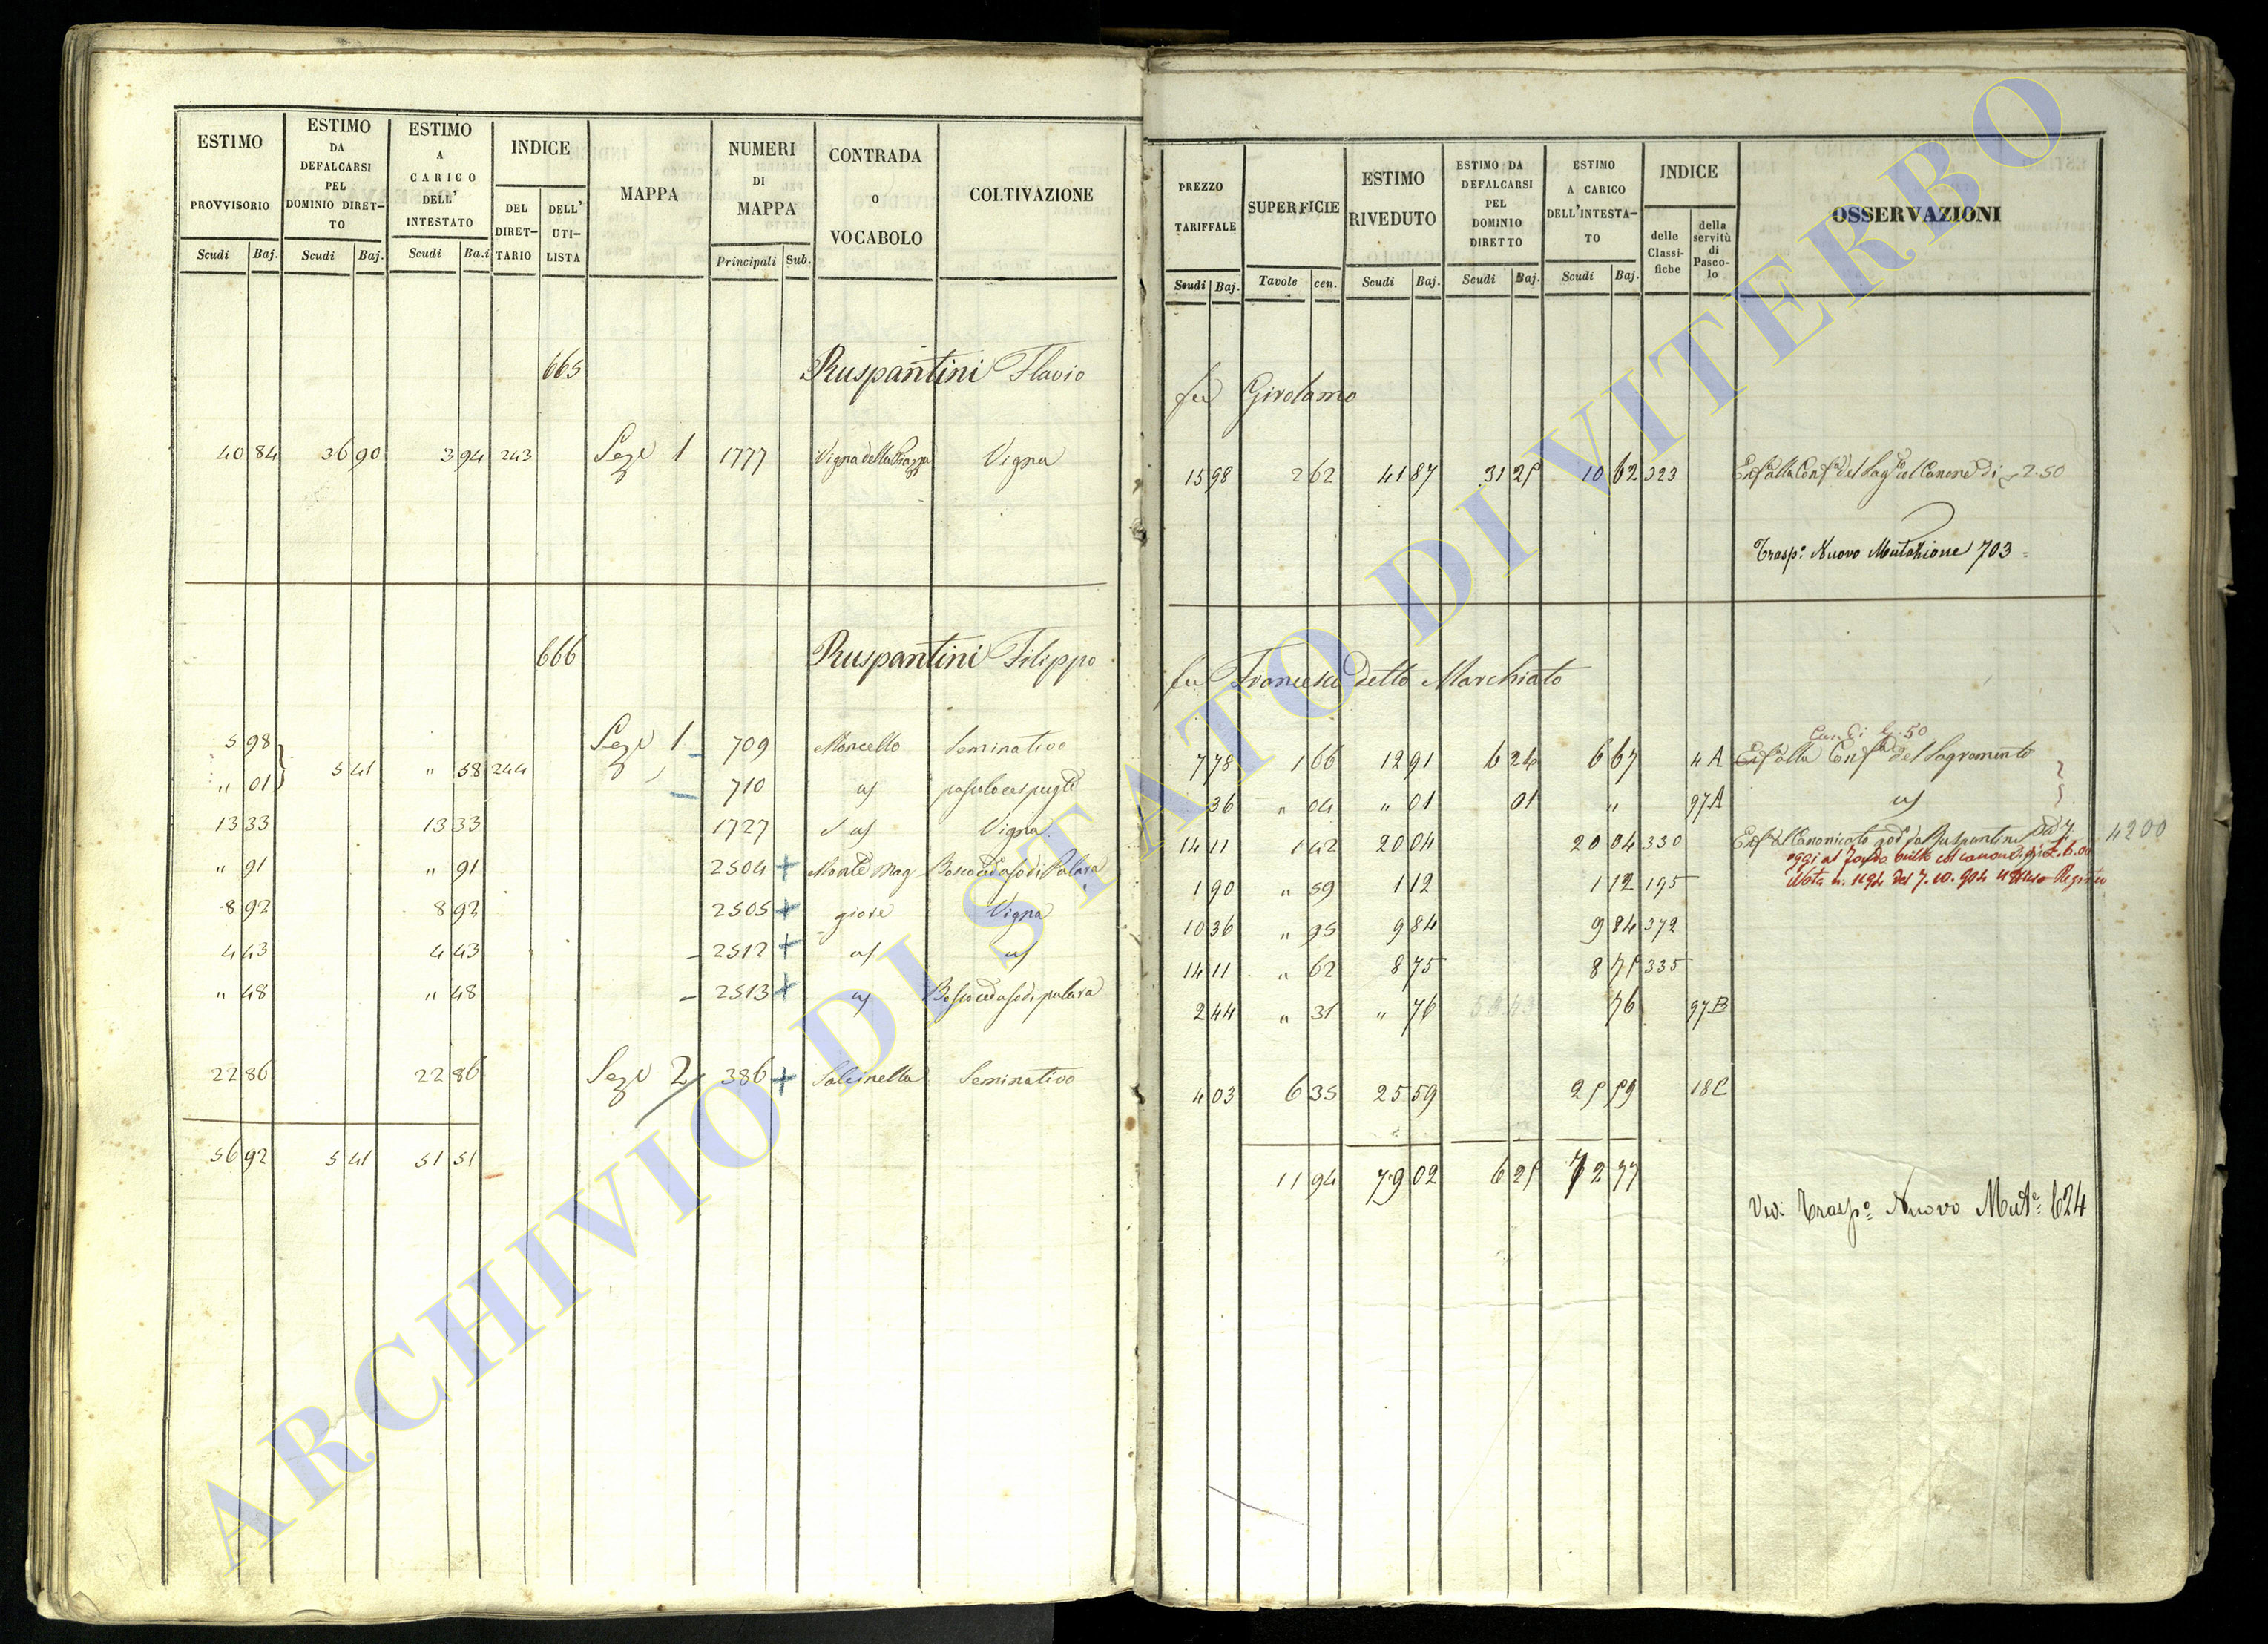 ESTIMO PROVVISORIO
Scudi Baj.
ESTIMO DA DEFALCARSI PEL DOMINIO DIRET- TO
Scudi Baj.
ESTIMO A CARICO DELL' INTESTATO
Scudi Ba.i
INDICE
DEL DIRET- TARIO
DELL' UTI- LISTA
MAPPA
NUMERI DI MAPPA
Principali Sub.
CONTRADA O VOCABOLO
COLTIVAZIONE
665 Ruspantini Flavio
40 84 36 90 3 94 243 Sez.e 1 1777 Vigna della Piazza Vigna
666 Ruspantini Filippo
5 98 Sez.e 1 709 Moncello Seminativo
5 41 " 58 244
" 01 710 us
13 33 13 33 1727 us Vigna
" 91 " 91 2504 + Monte Mag Bosco ceduo di Palara
8 92 8 92 2505 + giore Vigna
4 43 4 43 2512 + us us
" 48 " 48 2513 + us Bosco ceduo di palara
22 86 22 86 Sez.e 2 386 + Salcinella Seminativo
56 92 5 41 51 51
PREZZO TARIFFALE
Scudi Baj.
SUPERFICIE
Tavole cen.
ESTIMO RIVEDUTO
Scudi Baj.
ESTIMO DA DEFALCARSI PEL DOMINIO DIRETTO
Scudi Baj.
ESTIMO A CARICO DELL'INTESTA- TO
Scudi Baj.
INDICE
delle Classi- fiche
della servitù di Pasco- lo
OSSERVAZIONI
fu Girolamo
15 98 2 62 41 87 31 25 10 62 323 Enf.a alla Conf.a del Sag.to al Canone di 2.50
Trasp.o Nuovo Mutazione 703 =
fu Francesco detto Marchiato
7 78 1 66 12 91 6 24 6 67 4 A Enf.a alla Conf.a del Sagramento
36 " 04 " 01 01 " 97 A us
14 11 1 42 20 04 20 04 330 Enf.a al Canonicato Ruspantini 4200
1 90 " 59 1 12 1 12 195
10 36 " 95 9 84 9 84 372
14 11 " 62 8 75 8 75 335
2 44 " 31 " 76 76 97 B
4 03 6 35 25 59 25 59 18 C
11 94 79 02 6 25 72 77
Trasp.o Nuovo Mut.e 624
ARCHIVIO DI STATO DI VITERBO